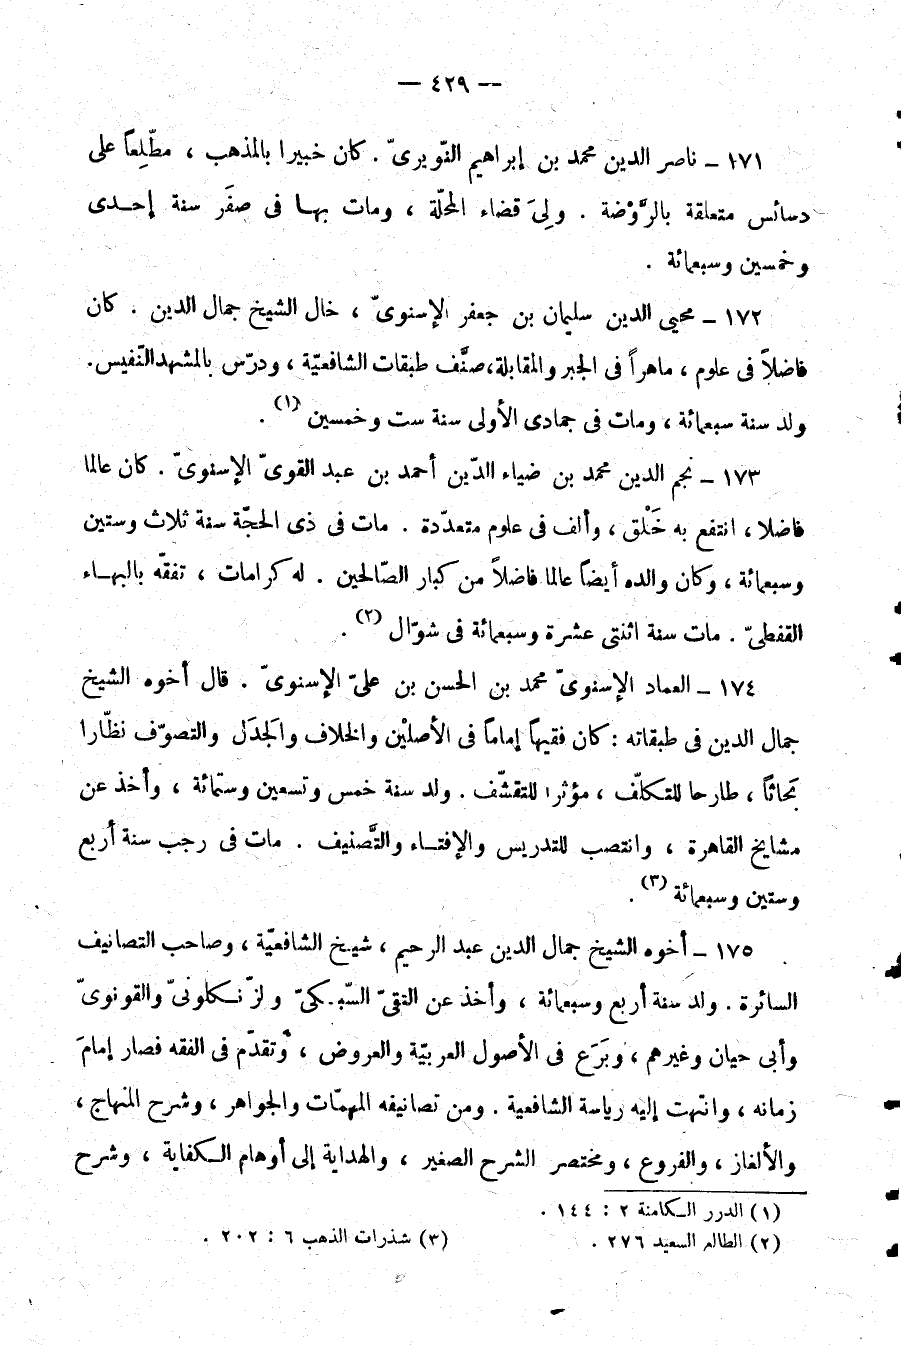 — ٤٢٩ —
١٧١ – ناصر الدين محمد بن إبراهيم النّويرىّ . كان خبيرا بالمذهب ، مطّلِعاً على
دسائس متعلقة بالرَّوْضة . ولِىَ قضاء المحلّة ، ومات بها فى صفَر سنة إحدى
وخمسين وسبعمائة .
١٧٢ – محيى الدين سليمان بن جعفر الإسنوىّ ، خال الشيخ جمال الدين . كان
فاضلاً فى علوم ، ماهراً فى الجبر والمقابلة، صنَّف طبقات الشافعيّة ، ودرّس بالمشهد النّفيس.
ولد سنة سبعمائة ، ومات فى جمادى الأولى سنة ست وخمسين (١) .
١٧٣ – نجم الدين محمد بن ضياء الدّين أحمد بن عبد القوىّ الإسنوىّ . كان عالما
فاضلا ، انتفع به خَلْق ، وألف فى علوم متعدّدة . مات فى ذى الحجّة سنة ثلاث وستين
وسبعمائة ، وكان والده أيضاً عالما فاضلاً من كبار الصّالحين . له كرامات ، تفقّه بالبهاء
القفطىّ . مات سنة اثنتى عشرة وسبعمائة فى شوّال (٢) .
١٧٤ – العماد الإسنوىّ محمد بن الحسن بن علىّ الإسنوىّ . قال أخوه الشيخ
جمال الدين فى طبقاته : كان فقيهاً إماماً فى الأصليْن والخلاف والجدَل والتصوّف نظّارا
بَحّاثاً ، طارحا للتكلّف ، مؤثرا للتقشّف . ولد سنة خمس وتسعين وستمّائة ، وأخذ عن
مشايخ القاهرة ، وانتصب للتدريس والإفتاء والتَّصنيف . مات فى رجب سنة أربع
وستين وسبعمائة (٣) .
١٧٥ – أخوه الشيخ جمال الدين عبد الرحيم ، شيخ الشافعيّة ، وصاحب التصانيف
السائرة . ولد سنة أربع وسبعمائة ، وأخذ عن التقىّ السّبكىّ والزّنكلونىّ والقونوىّ
وأبى حيان وغيرهم ، وبَرَع فى الأصول العربيّة والعروض ، وتقدّم فى الفقه فصار إمامَ
زمانه ، وانتهت إليه رياسة الشافعية . ومن تصانيفه المهمّات والجواهر ، وشرح المنهاج ،
والألغاز ، والفروع ، ومختصر الشرح الصغير ، والهداية إلى أوهام الكفاية ، وشرح
(١) الدرر الكامنة ٢ : ١٤٤ .
(٢) الطالع السعيد ٢٧٦ . (٣) شذرات الذهب ٦ : ٢٠٢ .